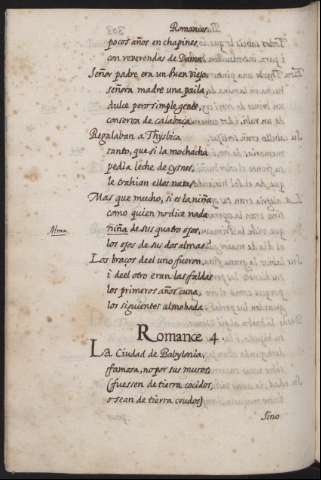 Romances
pocos años en chapines
con reverendas de Dama.
Señor padre era un buen viejo
señora madre una paila,
dulce pero simple gente,
conserva de calabaça
Regalaban a Thysbica
tanto, que si la mochacha
pedia leche de cysnes,
le trahian ellos natas
Mas que mucho, si es la niña
como quien no dice nada
Alma
niña de sus quatro ojos,
los ojos de sus dos almas.
Los braços deel uno fueron,
i deel otro eran las faldas
los primeros años cuna,
los siguientes almohada
Romance 4
La Ciudad de Babylonia,
famosa, no por sus muros
(fuessen de tierra cocidos,
o sean de tierra crudos)
Sino